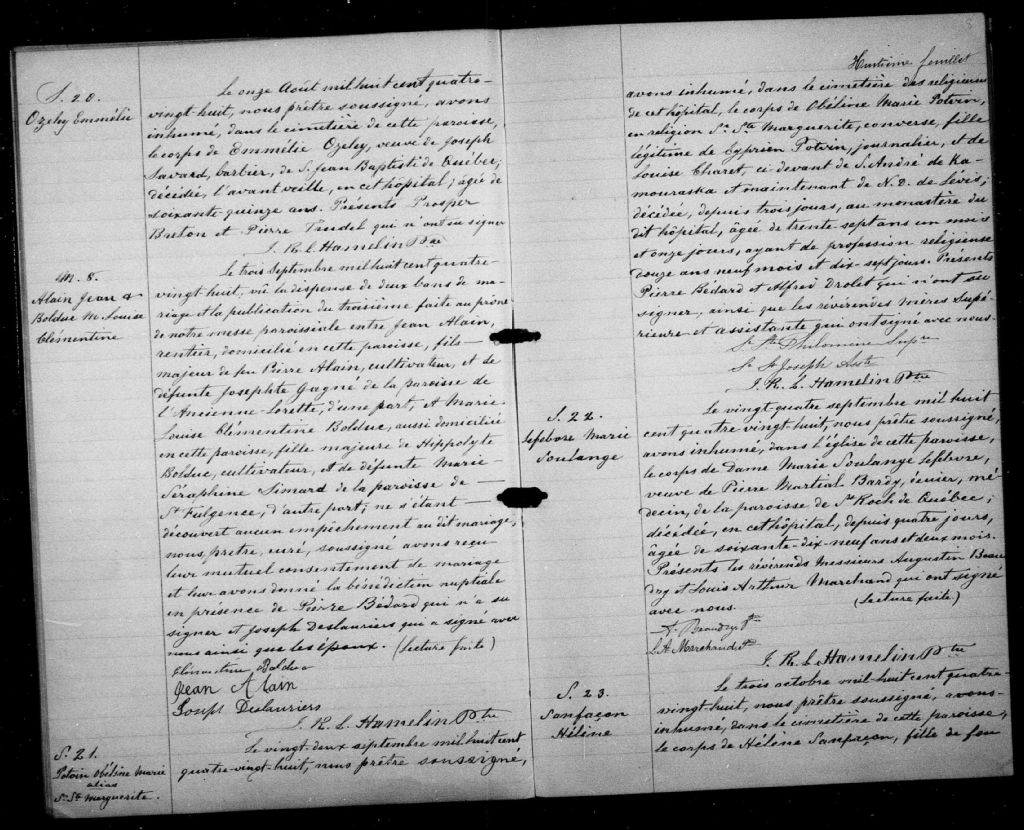 S. 20.
Ozely Emmélie
Le onze Août mil huit cent quatre-
vingt huit, nous prêtre soussigné, avons
inhumé, dans le cimetière de cette paroisse,
le corps de Emmélie Ozely, veuve de Joseph
Savard, barbier, de S. Jean Baptiste de Québec;
décédée, l'avant veille, en cet hôpital; âgée de
soixante quinze ans. Présents Prosper
Breton et Pierre Trudel qui n'ont su signer
J. R. L. Hamelin Ptre
M. 8.
Alain Jean &
Bolduc M. Louise
Clémentine
Le trois Septembre mil huit cent quatre-
vingt huit; vû la dispense de deux bans de ma-
riage et la publication du troisième faite au prône
de notre messe paroissiale entre Jean Alain,
rentier, domicilié en cette paroisse, fils
majeur de feu Pierre Alain, cultivateur, et de
défunte Josephte Gagné de la paroisse de
l'Ancienne-Lorette, d'une part; et Marie
Louise Clémentine Bolduc, aussi domiciliée
en cette paroisse, fille majeure de Hippolyte
Bolduc, cultivateur, et de défunte Marie-
Séraphine Simard de la paroisse de
St Fulgence, d'autre part; ne s'étant
découvert aucun empêchement au dit mariage,
nous prêtre, curé, soussigné avons reçu
leur mutuel consentement de mariage
et leur avons donné la bénédiction nuptiale
en présence de Pierre Bédard qui n'a su
signer et Joseph Deslauriers qui a signé avec
nous ainsi que les époux. (Lecture faite)
Clementine Bolduc
Jean Alain
Joseph Deslauriers
J. R. L. Hamelin Ptre
S. 21.
Potvin Obéline Marie
alias
Sr. Ste Marguerite.
Le vingt-deux septembre mil huit cent
quatre-vingt-huit, nous prêtre soussigné,
8
Huitième feuillet
avons inhumé, dans le cimetière des religieuses
de cet hôpital, le corps de Obéline Marie Potvin,
en religion Sr. Ste Marguerite, converse, fille
légitime de Cyprien Potvin, journalier, et de
Louise Charet, ci devant de S. André de Ka-
mouraska et maintenant de N. D. de Lévis;
décédée, depuis trois jours, au monastère du
dit hôpital, âgée de trente sept ans un mois
et onze jours, ayant de profession religieuse
douze ans neuf mois et dix-sept jours. Présents
Pierre Bédard et Alfred Drolet qui n'ont su
signer, ainsi que les révérendes mères Supé-
rieure et assistante qui ont signé avec nous.
Sr Ste Philomène Supre
Sr St Joseph Asste
J. R. L. Hamelin Ptre
S. 22.
Lefebvre Marie
Soulange
Le vingt-quatre septembre mil huit
cent quatre vingt-huit, nous prêtre soussigné,
avons inhumé, dans l'église de cette paroisse,
le corps de Dame Marie Soulange Lefebvre,
veuve de Pierre Martial Bardy, écuier, mé-
decin, de la paroisse de St Roch de Québec;
décédée, en cet hôpital, depuis quatre jours,
âgée de soixante-dix-neuf ans et deux mois.
Présents les révérends Messieurs Augustin Beau
dry et Louis Arthur Marchand qui ont signé
avec nous. (Lecture faite)
A. Beaudry Ptre
L. A. Marchand Ptre
J. R. L. Hamelin Ptre
S. 23.
Sanfaçon
Hélène
Le trois octobre mil-huit cent quatre-
vingt-huit, nous prêtre soussigné, avons
inhumé, dans le cimetière de cette paroisse,
le corps de Hélène Sanfaçon, fille de feu